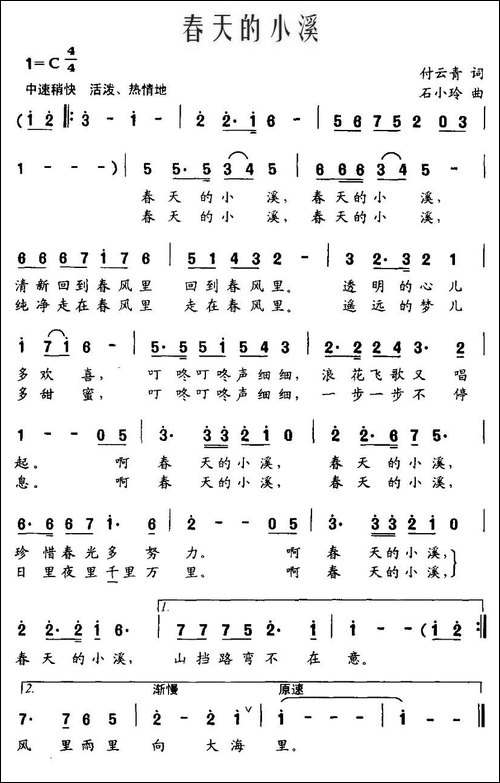 春天的小溪
1=C 4/4
中速稍快 活泼、热情地
付云青 词
石小玲 曲
(i 2 ‖: 3 - i - | 2 2· i 6 - | 5 6 7 5 2 0 3 |
1 - - ) | 5 5· 5 3 4 5 | 6 6 6 3 4 5 - |
春 天 的 小 溪, 春 天 的 小 溪,
春 天 的 小 溪, 春 天 的 小 溪,
6 6 6 6 7 i 7 6 | 5 1 4 3 2 - | 3 2· 3 2 1 |
清 新 回 到 春 风 里 回 到 春 风 里。 透 明 的 心 儿
纯 净 走 在 春 风 里 走 在 春 风 里。 遥 远 的 梦 儿
i 7 i 6 - | 5· 5 5 1 5 4 3 | 2· 2 2 4 3· 2 |
多 欢 喜, 叮 咚 叮 咚 声 细 细, 浪 花 飞 歌 又 唱
多 甜 蜜, 叮 咚 叮 咚 声 细 细, 一 步 一 步 不 停
1 - - 0 5 | 3· 3 3 2 i 0 | 2 2· 6 7 5· |
起。 啊 春 天 的 小 溪, 春 天 的 小 溪,
息。 啊 春 天 的 小 溪, 春 天 的 小 溪,
6· 6 6 7 1· 6 | 2 - - 0 5 | 3· 3 3 2 i 0 |
珍 惜 春 光 多 努 力。 啊 春 天 的 小 溪,
日 里 夜 里 千 里 万 里。 啊 春 天 的 小 溪,
1.
2 2· 2 i 6· | 7 7 7 5 2· i | i - (i 2 :‖
春 天 的 小 溪, 山 挡 路 弯 不 在 意。
2. 渐慢 原速
7· 7 6 5 | 2· 2 i ∨ | i - - - | i - i 0 ‖
风 里 雨 里 向 大 海 里。